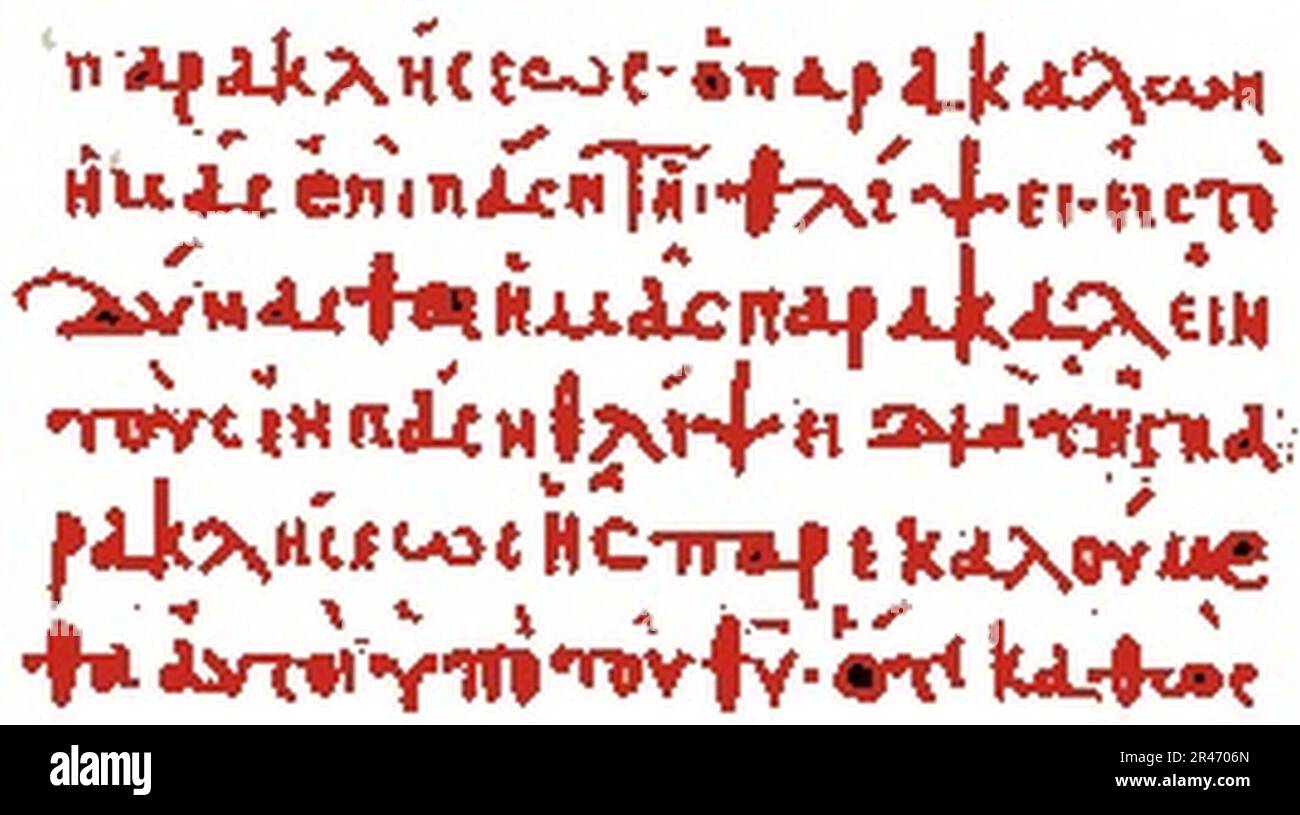 παρακλήσεως· ὁ παρακαλῶν
ἡμᾶς ἐπὶ πάσῃ Τῆι θλίψει· εἰς τὸ
δύνασθαι ἡμᾶς παρακαλεῖν
τοὺς ἐν πάση θλίψει διὰ τῆς πα
ρακλήσεως ἧς παρεκαλούμε
θα αὐτοὶ ὑπὸ τοῦ θ̅υ̅· ὅτι καθὼς
alamy
Image ID: 2R4706N
www.alamy.com